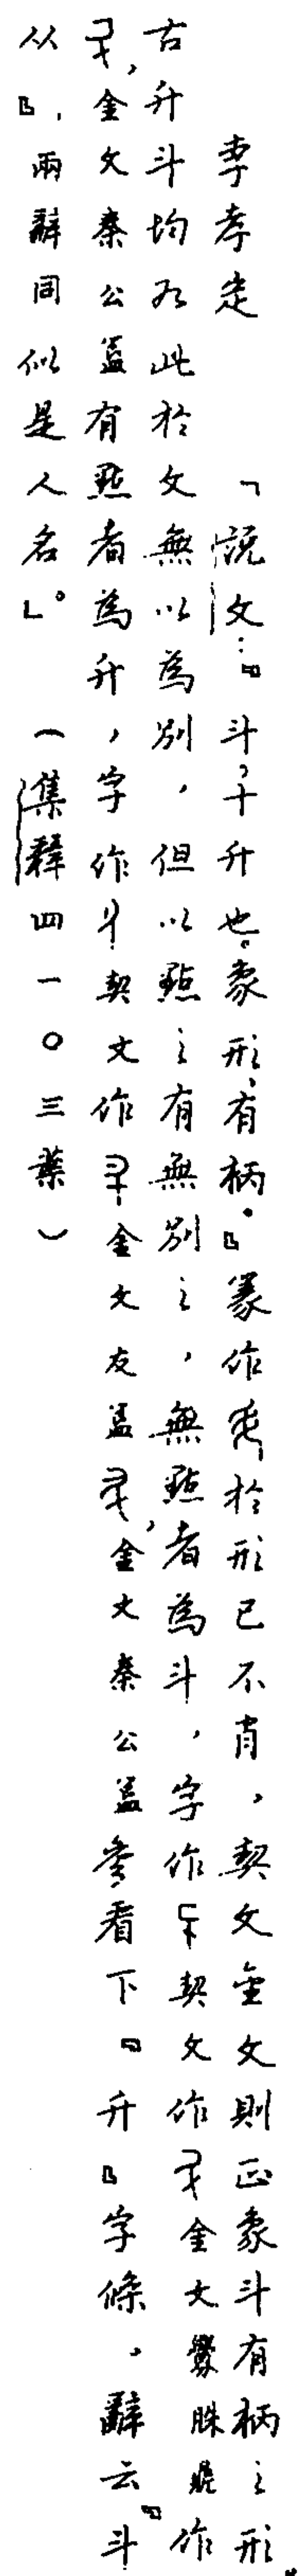 李孝定　「說文：『斗，十升也。象形，有柄。』篆作於形已不肖，契文金文則正象斗有柄之形
古升斗均有此於文無以為別，但以點之有無別之，無點者為斗，字作契文作金文釁朕鼎作
，金文秦公簋有點者為升，字作契文作金文友簋，金文秦公簋參看下『升』字條，辭云『斗
从』，兩辭同似是人名。」（集釋四一〇三葉）